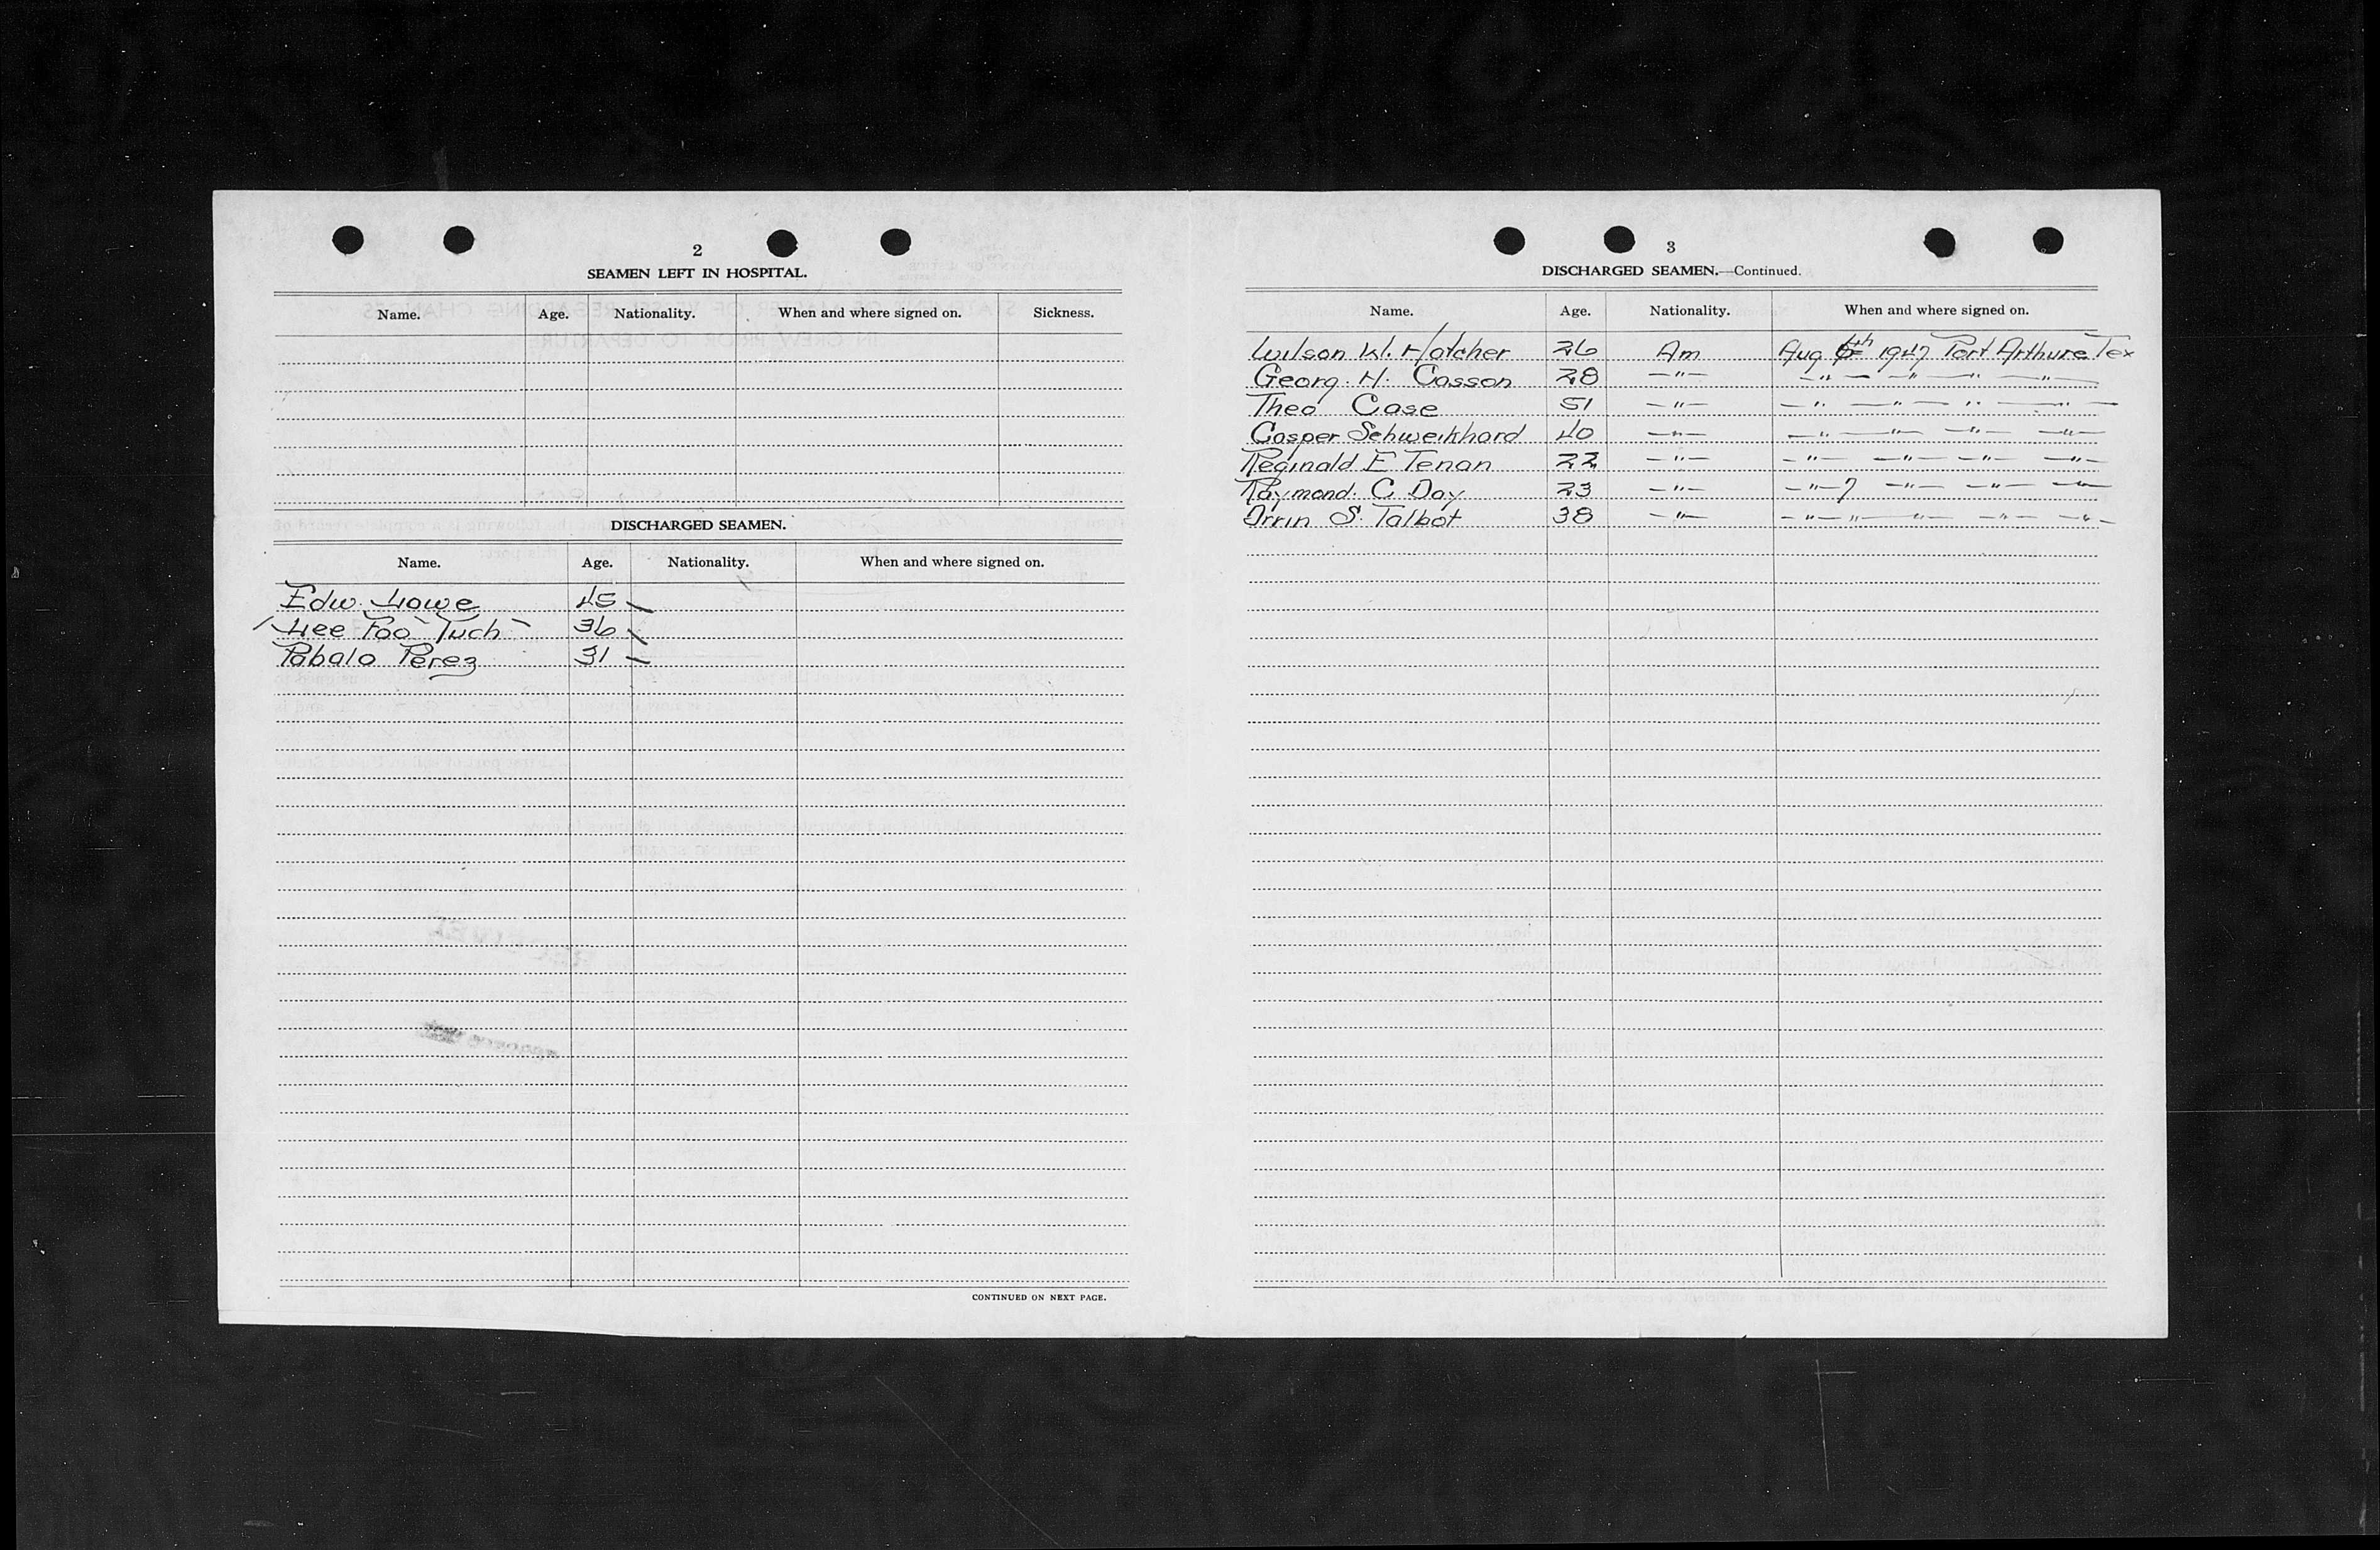 2
SEAMEN LEFT IN HOSPITAL.
Name. Age. Nationality. When and where signed on. Sickness.
DISCHARGED SEAMEN.
Name. Age. Nationality. When and where signed on.
Edw. Lowe 45
Lee Foo Tuch 36
Pabalo Perez 31
CONTINUED ON NEXT PAGE.
3
DISCHARGED SEAMEN.—Continued.
Name. Age. Nationality. When and where signed on.
Wilson W. Hatcher 26 Am Aug 6th 1947 Port Arthure Tex
Georg. H. Casson 28 -"- -"- -"- -"- -"-
Theo Case 51 -"- -"- -"- -"- -"-
Casper Schweikhard 40 -"- -"- -"- -"- -"-
Reginald E Tenan 22 -"- -"- -"- -"- -"-
Raymond. C Day 23 -"- -"- 7 -"- -"- -"-
Orrin S. Talbot 38 -"- -"- -"- -"- -"- -"-